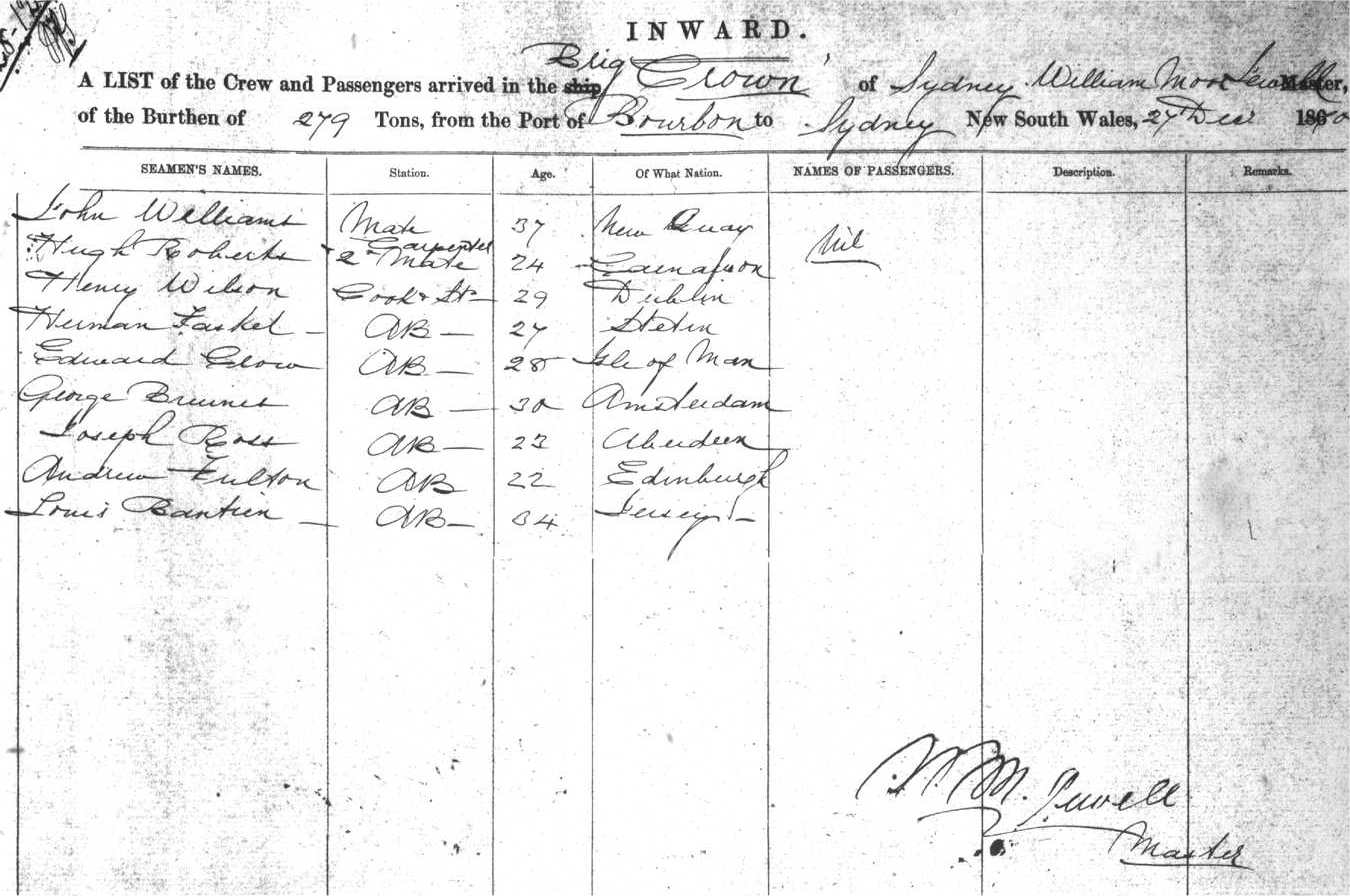 INWARD.
Brig
A LIST of the Crew and Passengers arrived in the ship Crown of Sydney William Moor Jewell Master,
of the Burthen of 279 Tons, from the Port of Bourbon to Sydney New South Wales, 27 Decr 18
SEAMEN'S NAMES. Station. Age. Of What Nation. NAMES OF PASSENGERS. Description. Remarks.
John Williams Mate 37 New Quay Nil
Carpenter
Hugh Roberts 2d Mate 24 Carnarvon
Henry Wilson Cook & St 29 Dublin
Herman AB 27 Stetin
Edward AB 28 Isle of Man
George AB 30 Amsterdam
Joseph Ross AB 23 Aberdeen
Andrew Fulton AB 22 Edinburgh
Louis AB 34 Jersey
W. M. Jewell
Master